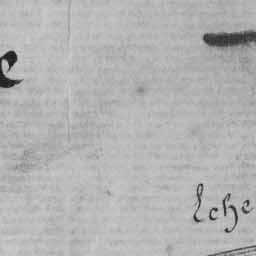 e
Eche